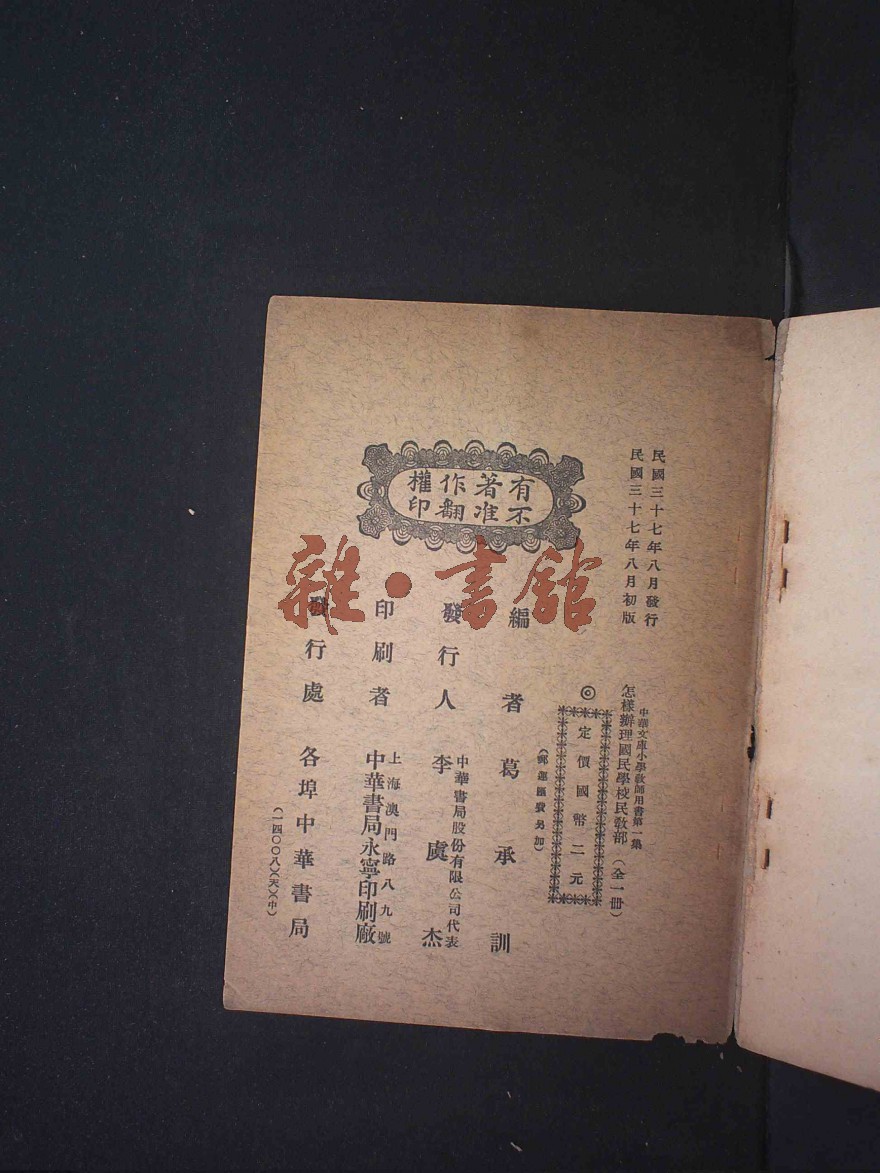 民國三十七年八月發行
民國三十七年八月初版
中華文庫小學教師用書第一集
怎樣辦理國民學校民教部（全一冊）
◎定價國幣二元
（郵運匯費另加）
有著作權
不准翻印
編者 葛承訓
發行人 李虞杰
中華書局股份有限公司代表
印刷者 中華書局永寧印刷廠
上海澳門路八九號
發行處 各埠中華書局
（一四〇〇八）（天）（中）
雜·書館